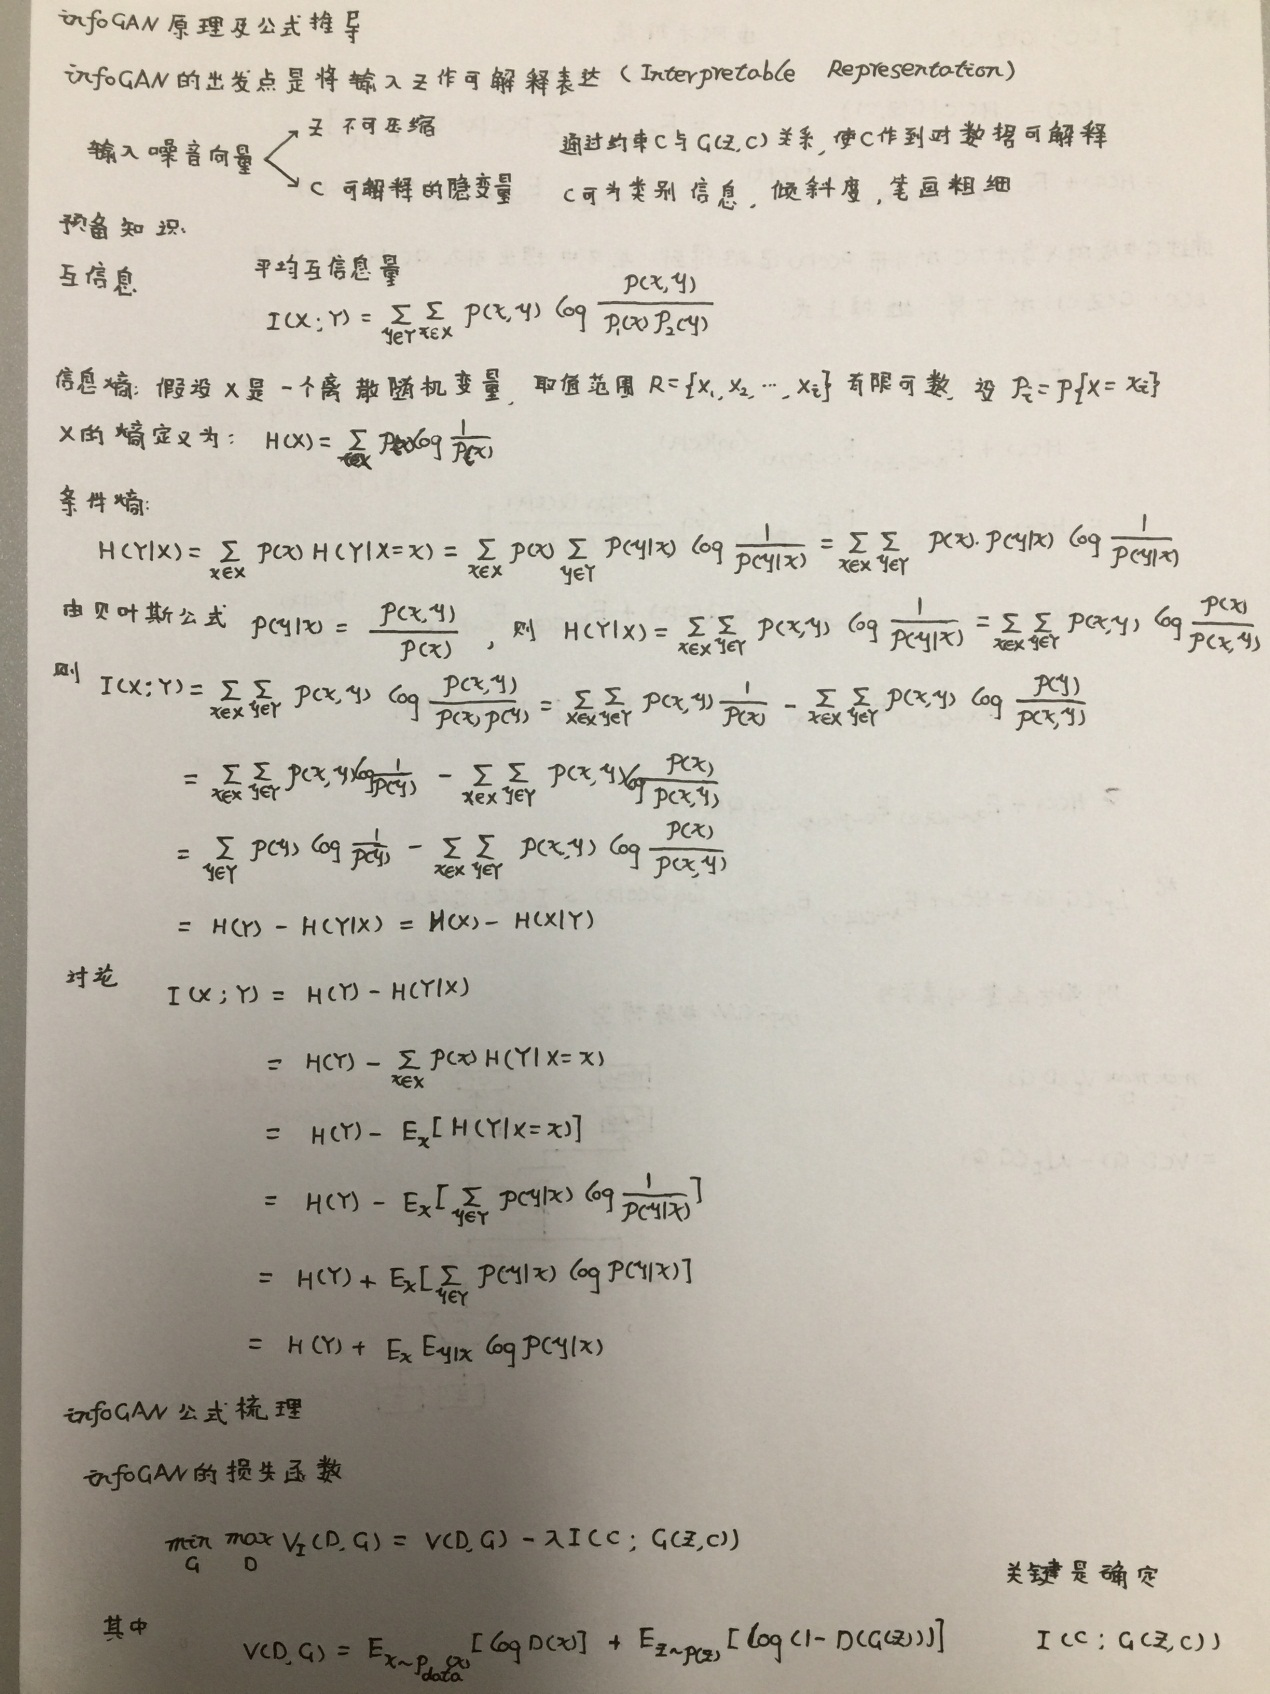 infoGAN 原理及公式推导
infoGAN的出发点是将输入Z作可解释表达 (Interpretable Representation)
输入噪音向量
Z 不可压缩
C 可解释的隐变量
通过约束C与G(Z,C)关系,使C作到对数据可解释
C可为类别信息,倾斜度,笔画粗细
预备知识:
互信息 平均互信息量
I(X;Y) = ∑_{y∈Y} ∑_{x∈X} P(x,y) log \frac{P(x,y)}{P₁(x)P₂(y)}
信息熵: 假设X是一个离散随机变量, 取值范围 R={X₁,X₂,…,Xᵢ} 有限可数, 设 Pᵢ=P{X=xᵢ}
X的熵定义为: H(X) = ∑ Pᵢ log \frac{1}{Pᵢ(x)}
条件熵:
H(Y|X) = ∑_{x∈X} P(x) H(Y|X=x) = ∑_{x∈X} P(x) ∑_{y∈Y} P(y|x) log \frac{1}{P(y|x)} = ∑_{x∈X} ∑_{y∈Y} P(x)·P(y|x) log \frac{1}{P(y|x)}
由贝叶斯公式 P(y|x) = \frac{P(x,y)}{P(x)}, 则 H(Y|X) = ∑_{x∈X} ∑_{y∈Y} P(x,y) log \frac{1}{P(y|x)} = ∑_{x∈X} ∑_{y∈Y} P(x,y) log \frac{P(x)}{P(x,y)}
则 I(X;Y) = ∑_{x∈X} ∑_{y∈Y} P(x,y) log \frac{P(x,y)}{P(x)P(y)} = ∑_{x∈X} ∑_{y∈Y} P(x,y) \frac{1}{P(x)} - ∑_{x∈X} ∑_{y∈Y} P(x,y) log \frac{P(y)}{P(x,y)}
= ∑_{x∈X} ∑_{y∈Y} P(x,y) log \frac{1}{P(y)} - ∑_{x∈X} ∑_{y∈Y} P(x,y) log \frac{P(x)}{P(x,y)}
= ∑_{y∈Y} P(y) log \frac{1}{P(y)} - ∑_{x∈X} ∑_{y∈Y} P(x,y) log \frac{P(x)}{P(x,y)}
= H(Y) - H(Y|X) = H(X) - H(X|Y)
讨论 I(X;Y) = H(Y) - H(Y|X)
= H(Y) - ∑_{x∈X} P(x) H(Y|X=x)
= H(Y) - E_x[H(Y|X=x)]
= H(Y) - E_x[∑_{y∈Y} P(y|x) log \frac{1}{P(y|x)}]
= H(Y) + E_x[∑_{y∈Y} P(y|x) log P(y|x)]
= H(Y) + E_x E_{y|x} log P(y|x)
infoGAN公式梳理
infoGAN的损失函数
min_G max_D V_I(D,G) = V(D,G) - λI(C; G(Z,C))
关键是确定
其中 V(D,G) = E_{x~P_data(x)}[log D(x)] + E_{z~P(z)}[log(1-D(G(Z)))] I(C; G(Z,C))